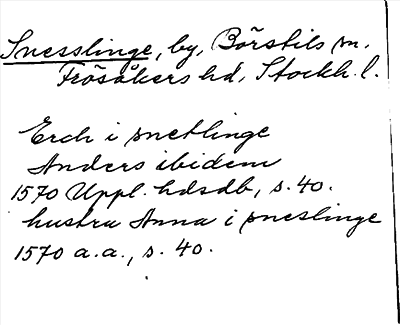 Snesslinge, by, Börstils sn,
Frösåkers hd, Stockh. l.
Erch i snetlinge
Anders ibidem
1570 Uppl. hdsdb, s. 40.
hustru Anna i sneslinge
1570 a.a., s. 40.